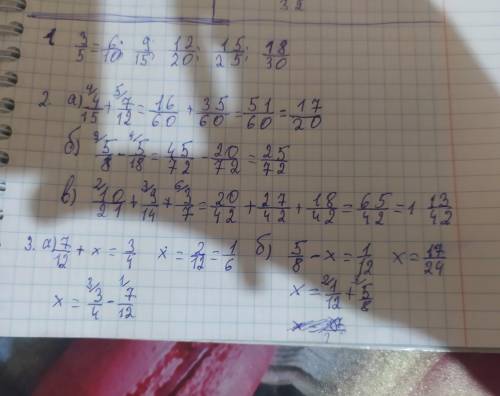 32
1. 3/5 = 6/10; 9/15; 12/20; 15/25; 18/30
2. а) 4/4/15 + 5/7/12 = 16/60 + 35/60 = 51/60 = 17/20
б) 9/5/8 - 4/5/18 = 45/72 - 20/72 = 25/72
в) 2/10/21 + 3/9/14 + 6/3/7 = 20/42 + 27/42 + 18/42 = 65/42 = 1 13/42
3. а) 7/12 + x = 3/4 x = 2/12 = 1/6 б) 5/8 - x = 1/12 x = 17/24
x = 3/3/4 - 1/7/12 x = 2/1/12 + 3/5/8